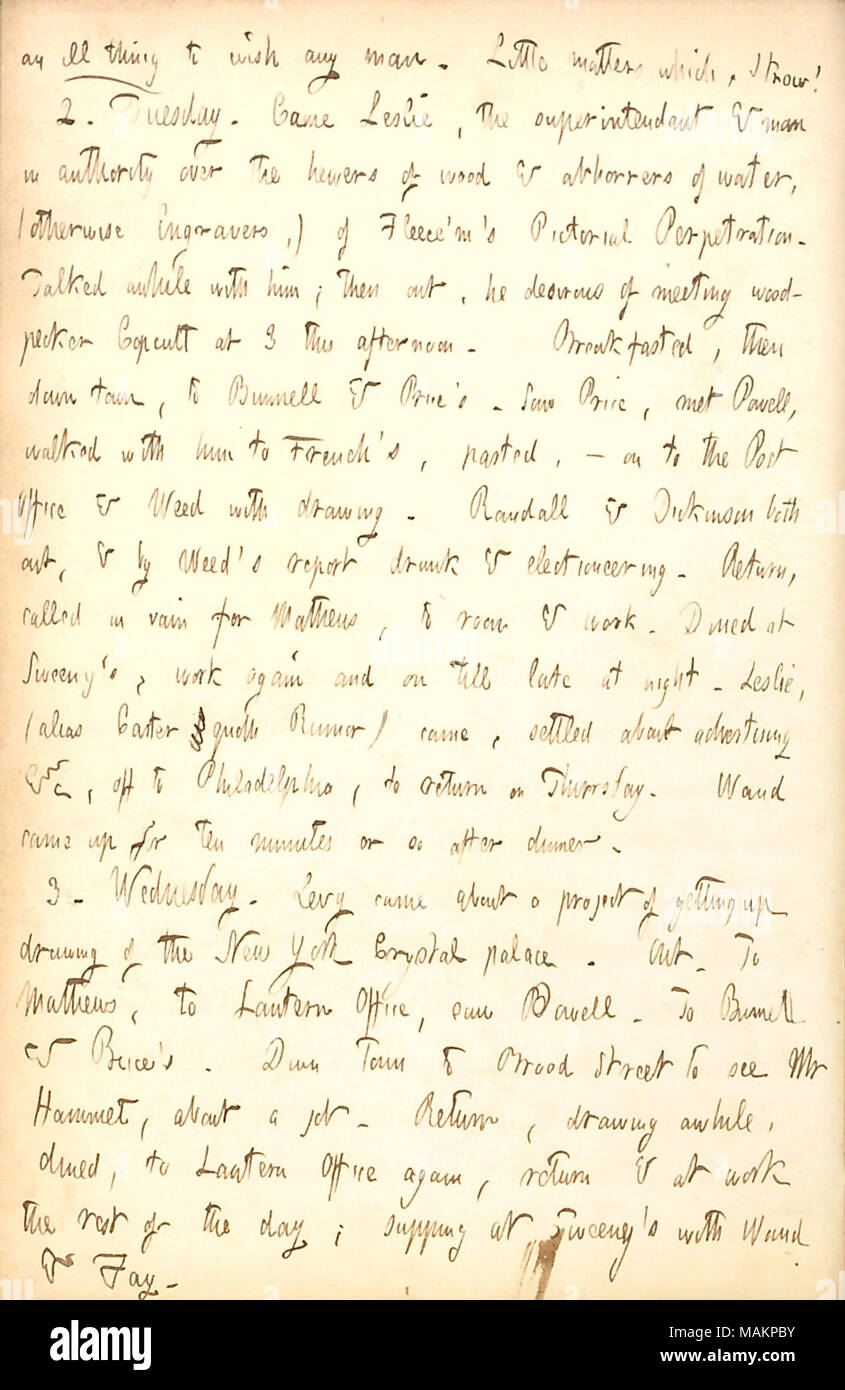 an ill thing to wish any man. Little matters which, I trow!
2. Tuesday. Came Leslie, the superintendant & man
in authority over the hewers of wood & abhorrers of water,
(otherwise Engravers,) of Fleece'm's Pictorial Perpetration.
Talked awhile with him; then out, he desirous of meeting wood-
pecker Copcutt at 3 this afternoon. Breakfasted, then
down town, to Bunnell & Price's. Saw Price, met Powell,
walked with him to French's, parted, — on to the Post
Office & Weed with drawing. Randall & Dickinson both
out, & by Weed's report drunk & electioneering. Return,
called in vain for Mathews, to room & work. Dined at
Sweeny's, work again and on till late at night. Leslie,
(alias Carter quoth Rumor) came, settled about advertising
&c, off to Philadelphia, to return on Thursday. Waud
came up for ten minutes or so after dinner.
3. Wednesday. Levy came about a project of getting up
drawing of the New York Crystal palace. Out. To
Mathews, to Lantern Office, saw Powell. To Bunnell
& Price's. Down Town to Broad Street to see Mr
Hammet, about a job. Return, drawing awhile,
dined, to Lantern Office again, return & at work
the rest of the day; supping at Sweeney's with Waud
& Fay.
alamy
Image ID: MAKPBY
www.alamy.com